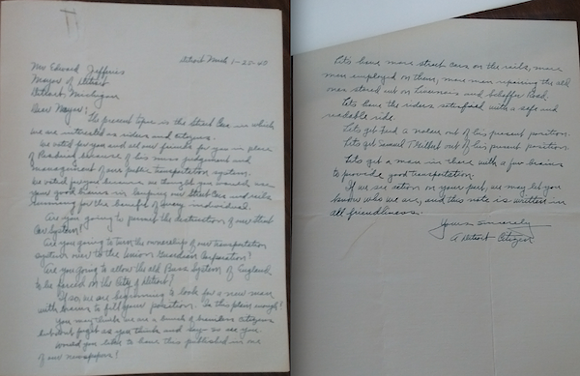 Detroit Mich 1-20-40
Mr Edward Jeffries
Mayor of Detroit
Detroit, Michigan
Dear Mayor!
The present topic is the Street Car in which
we are interested as riders and citizens.
We voted for you and all our friends for you in place
of Reading because of his mismanagement and
management of our public transportation system.
We voted for you because we thought you would use
your good hands in keeping our Street Cars and rails
running for the benefit of every individual.
Are you going to permit the destruction of our Street
Car System?
Are you going to turn the ownership of our transportation
system over to the Union Guardian Corporation?
Are you going to allow the old Bus System of England
to be forced on the City of Detroit?
If so, we are beginning to look for a new man
with brains to fill your position. Is this plain enough?
You may think we are a bunch of brainless citizens
but don't forget as you think and say so are you.
Would you like to have this published in one
of our newspapers?
Let's have more street cars on the rails, more
men employed on them, more men repairing the old
ones stored out on Livernois and Schaffer Road.
Let's have the riders satisfied with a safe and
readable ride.
Let's get Fred A Nolan out of his present position.
Let's get Samuel T Gilbert out of his present position.
Let's get a man in there with a few brains
to provide good transportation.
If we see action on your part, we may let you
know who we are, and this note is written in
all friendliness.
Yours Sincerely
A Detroit Citizen